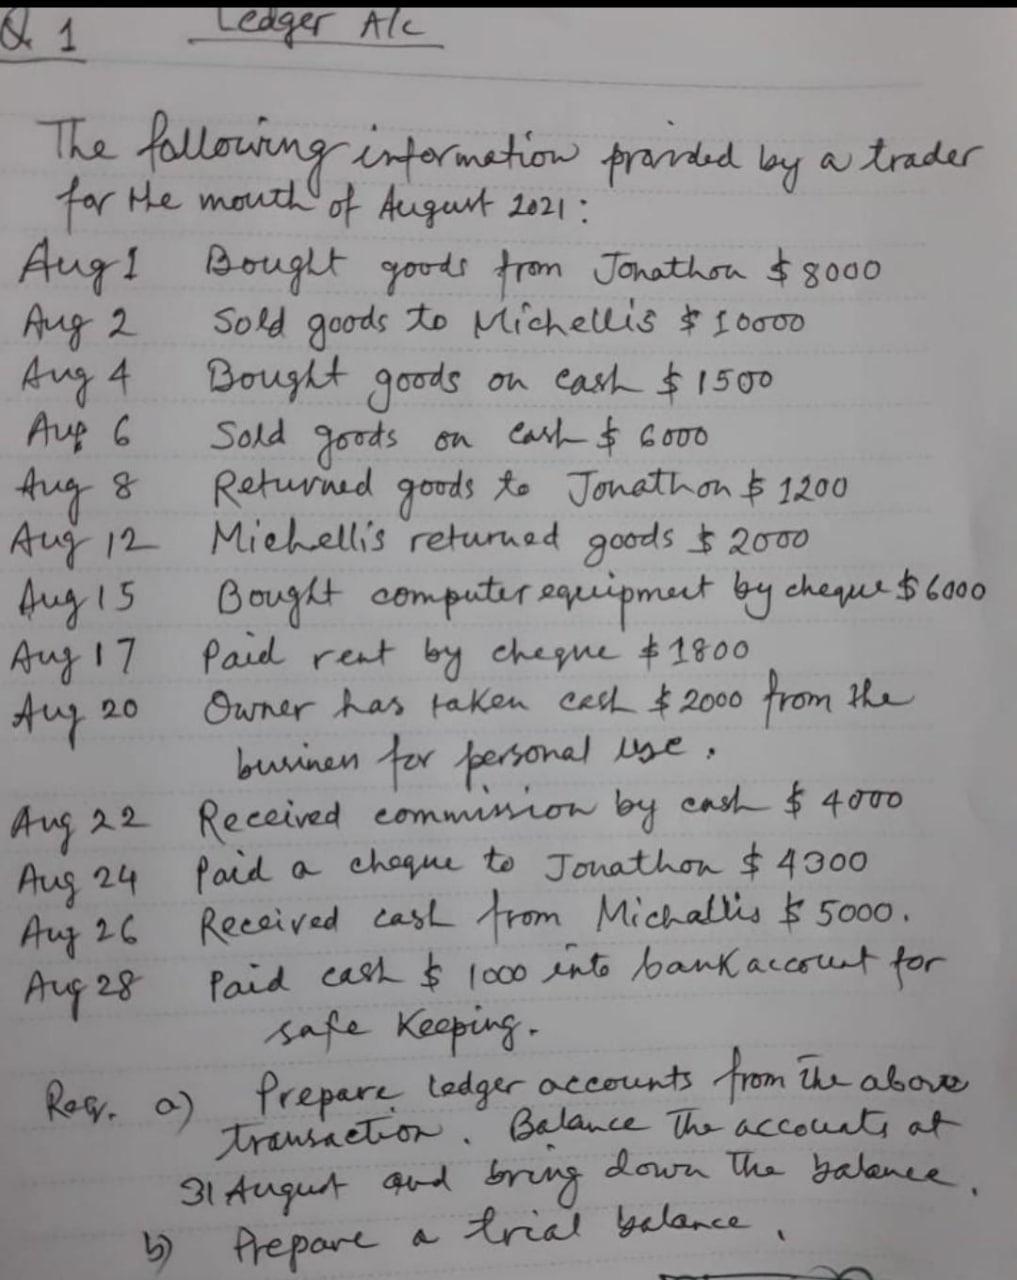 Q 1 Ledger A/c
The following information provided by a trader
for the month of August 2021:
Aug 1 Bought goods from Jonathon $ 8000
Aug 2 Sold goods to Michellis $ 10000
Aug 4 Bought goods on cash $ 1500
Aug 6 Sold goods on cash $ 6000
Aug 8 Returned goods to Jonathon $ 1200
Aug 12 Michellis returned goods $ 2000
Aug 15 Bought computer equipment by cheque $ 6000
Aug 17 Paid rent by cheque $ 1800
Aug 20 Owner has taken cash $ 2000 from the
business for personal use.
Aug 22 Received commission by cash $ 4000
Aug 24 Paid a cheque to Jonathon $ 4300
Aug 26 Received cash from Michallis $ 5000.
Aug 28 Paid cash $ 1000 into bank account for
safe Keeping.
Req. a) Prepare ledger accounts from the above
transaction. Balance the accounts at
31 August and bring down the balance.
b) Prepare a trial balance.